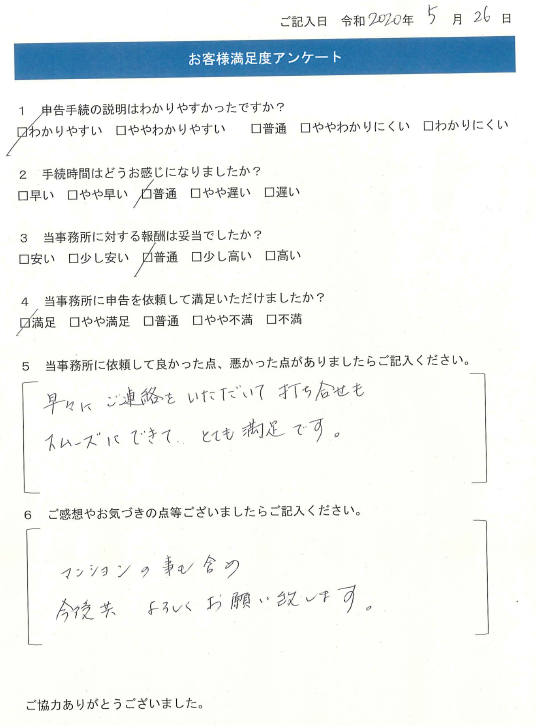 ご記入日 令和2020年 5月26日
お客様満足度アンケート
1 申告手続の説明はわかりやすかったですか?
□わかりやすい □ややわかりやすい □普通 □ややわかりにくい □わかりにくい
2 手続時間はどうお感じになりましたか?
□早い □やや早い □普通 □やや遅い □遅い
3 当事務所に対する報酬は妥当でしたか?
□安い □少し安い □普通 □少し高い □高い
4 当事務所に申告を依頼して満足いただけましたか?
□満足 □やや満足 □普通 □やや不満 □不満
5 当事務所に依頼して良かった点、悪かった点がありましたらご記入ください。
早々に ご連絡を いただいて 打ち合せも
スムーズにできて、とても満足です。
6 ご感想やお気づきの点等ございましたらご記入ください。
マンションの事も含め
今後共 よろしくお願い致します。
ご協力ありがとうございました。